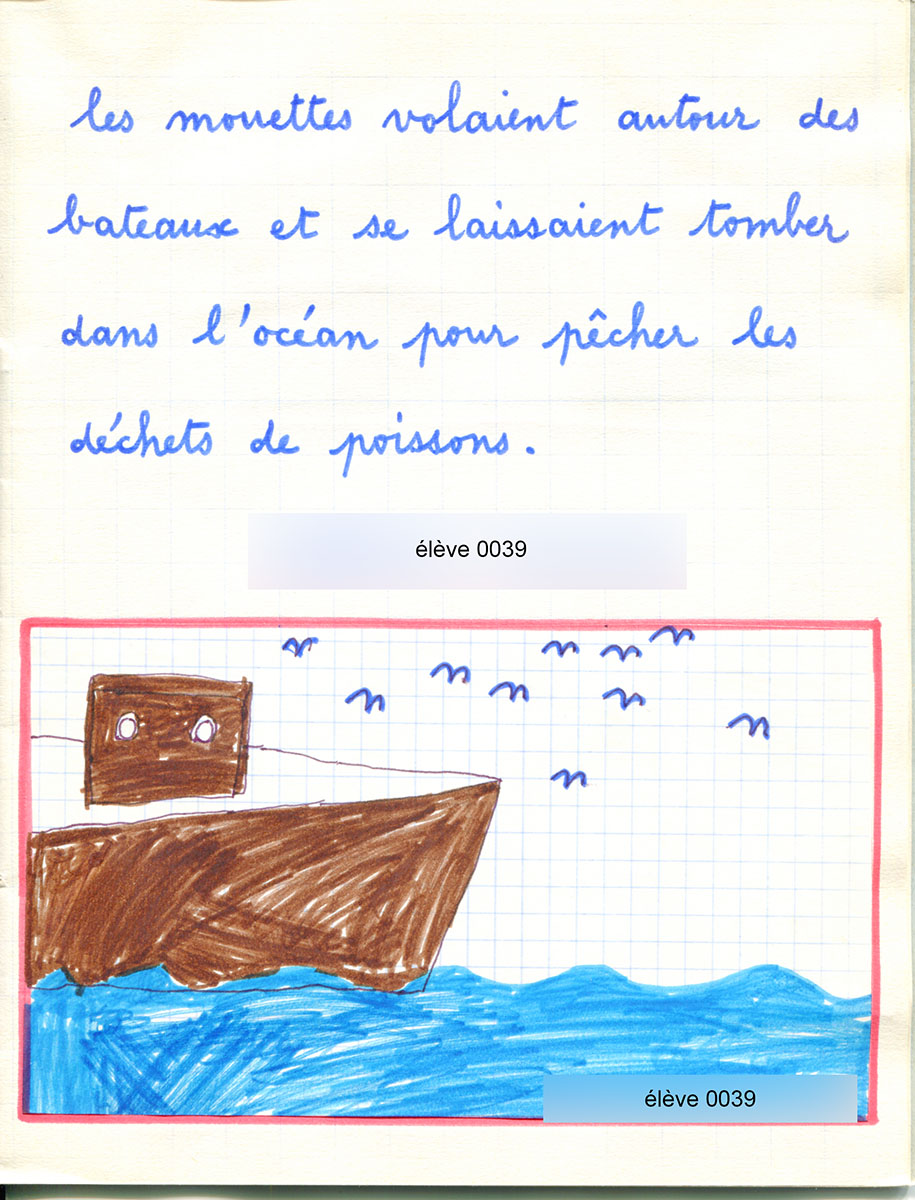 les mouettes volaient autour des
bateaux et se laissaient tomber
dans l'océan pour pêcher les
déchets de poissons.
élève 0039
élève 0039